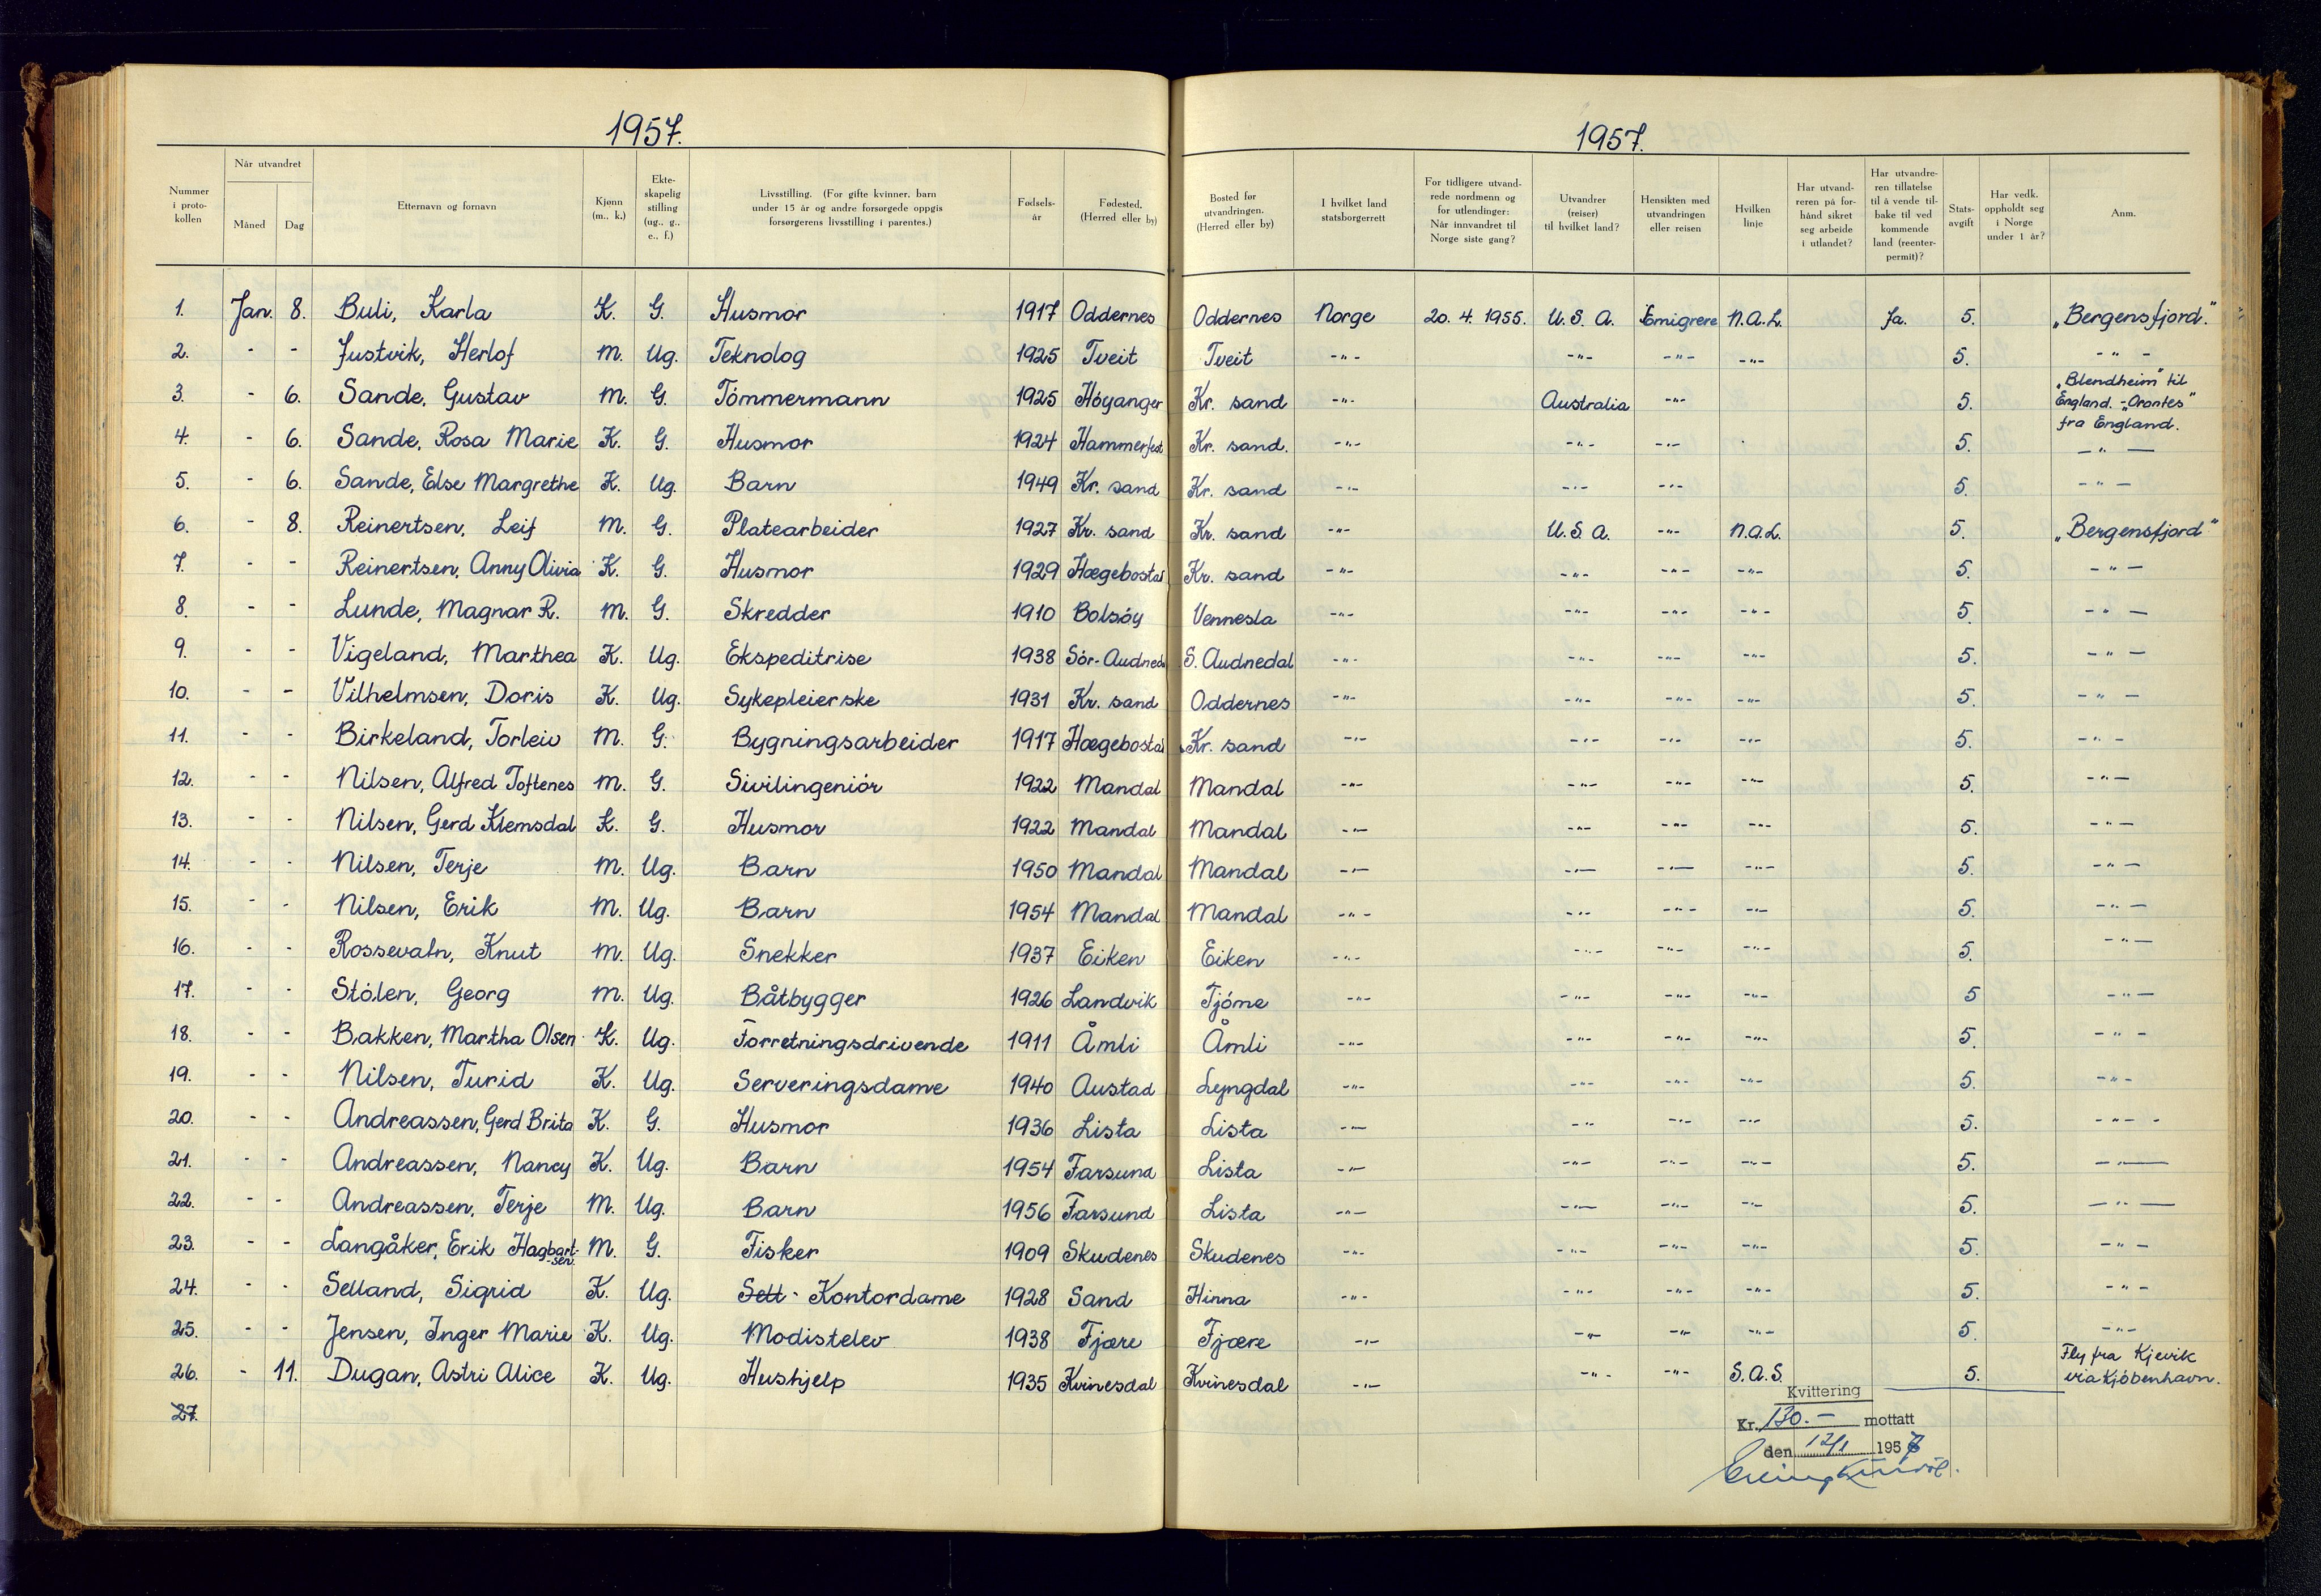 1957. 1957.
Nummer i protokollen | Når utvandret Måned Dag | Etternavn og fornavn | Kjønn (m., k.) | Ekteskapelig stilling (ug., g., e., f.) | Livsstilling. (For gifte kvinner, barn under 15 år og andre forsørgede oppgis forsørgerens livsstilling i parentes.) | Fødselsår | Fødested. (Herred eller by) | Bosted før utvandringen. (Herred eller by) | I hvilket land statsborgerrett | For tidligere utvandrede nordmenn og for utlendinger: Når innvandret til Norge siste gang? | Utvandrer (reiser) til hvilket land? | Hensikten med utvandringen eller reisen | Hvilken linje | Har utvandreren på forhånd sikret seg arbeide i utlandet? | Har utvandreren tillatelse til å vende tilbake til ved kommende land (reenterpermit)? | Statsavgift | Har vedk. oppholdt seg i Norge under 1 år? | Anm.
1. Jan. 8. Buli, Karla K. G. Husmor 1917 Oddernes Oddernes Norge 20. 4. 1955. U. S. A. Emigrere N.A.L. Ja. 5. „Bergensfjord."
2. - - Justvik, Herlof M. Ug. Teknolog 1925 Tveit Tveit -"- -"- -"- -"- 5. -"-
3. - 6. Sande, Gustav M. G. Tómmermann 1925 Hóyanger Kr. sand -"- Australia -"- 5. „Blendheim" til England. - „Orontes" fra England.
4. - 6. Sande, Rosa Marie K. G. Husmor 1924 Hammerfest Kr. sand. -"- -"- -"- 5. -"-
5. - 6. Sande, Else Margrethe K. Ug. Barn 1949 Kr. sand Kr. sand -"- -"- -"- 5. -"-
6. - 8. Reinertsen, Leif M. G. Platearbeider 1927 Kr. sand Kr. sand -"- U. S. A. -"- N.A.L. 5. „Bergensfjord"
7. - - Reinertsen, Anny Olivia K. G. Husmor 1929 Hægebostad Kr. sand -"- -"- -"- -"- 5. -"-
8. - - Lunde, Magnar R. M. G. Skredder 1910 Bolsóy Vennesla -"- -"- -"- -"- 5. -"-
9. - - Vigeland, Marthea K. Ug. Ekspeditrise 1938 Sór-Audnedal S. Audnedal -"- -"- -"- -"- 5. -"-
10. - - Vilhelmsen, Doris K. Ug. Sykepleierske 1931 Kr. sand Oddernes -"- -"- -"- -"- 5. -"-
11. - - Birkeland, Torleiv M. G. Bygningsarbeider 1917 Hægebostad Kr. sand -"- -"- -"- -"- 5. -"-
12. - - Nilsen, Alfred Toftenes M. G. Sivilingeniór 1922 Mandal Mandal -"- -"- -"- -"- 5. -"-
13. - - Nilsen, Gerd Klemsdal K. G. Husmor 1922 Mandal Mandal -"- -"- -"- -"- 5. -"-
14. - - Nilsen, Terje M. Ug. Barn 1950 Mandal Mandal -"- -"- -"- -"- 5. -"-
15. - - Nilsen, Erik M. Ug. Barn 1954 Mandal Mandal -"- -"- -"- -"- 5. -"-
16. - - Rossevatn, Knut M. Ug. Snekker 1937 Eiken Eiken -"- -"- -"- -"- 5. -"-
17. - - Stólen, Georg M. Ug. Båtbygger 1926 Landvik Tjóme -"- -"- -"- -"- 5 -"-
18. - - Bakken, Martha Olsen K. Ug. Forretningsdrivende 1911 Åmli Åmli -"- -"- -"- -"- 5. -"-
19. - - Nilsen, Turid K. Ug. Serveringsdame 1940 Austad Lyngdal -"- -"- -"- -"- 5. -"-
20. - - Andreassen, Gerd Brita K. G. Husmor 1936 Lista Lista -"- -"- -"- -"- 5. -"-
21. - - Andreassen, Nancy K. Ug. Barn 1954 Farsund Lista -"- -"- -"- -"- 5. -"-
22. - - Andreassen, Terje M. Ug. Barn 1956 Farsund Lista -"- -"- -"- -"- 5. -"-
23. - - Langåker, Erik Hagbart-sen. M. G. Fisker 1909 Skudenes Skudenes -"- -"- -"- -"- 5. -"-
24. - - Selland, Sigrid K. Ug. Sett - Kontordame 1928 Sand Hinna -"- -"- -"- -"- 5. -"-
25. - - Jensen, Inger Marie K. Ug. Modistelev 1938 Fjære Fjære -"- -"- -"- -"- 5. -"-
26. - 11. Dugan, Astri Alice K. Ug. Hushjelp 1935 Kvinesdal Kvinesdal -"- -"- -"- S.A.S. 5. Fly fra Kjevik via Kjóbenhavn.
27.
Kvittering
Kr. 130.- mottatt
den 12/1 1957